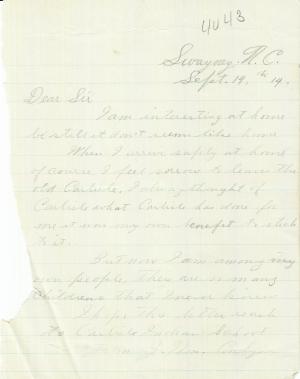 4043
Swayney. N. C.
Sept. 19. th 14.
Dear Sir
I am interesting at home
be still it don't seem like home
When I arrive safely at home
of course I feel sorrow to leave the
old Carlisle. I alway thought of
Carlisle what Carlisle has done for
me it was my own benefit to stick
to it.
But now I am among my
own people. There are so many
Childrens that I never
I hope this letter reach
to Carlisle Indian School